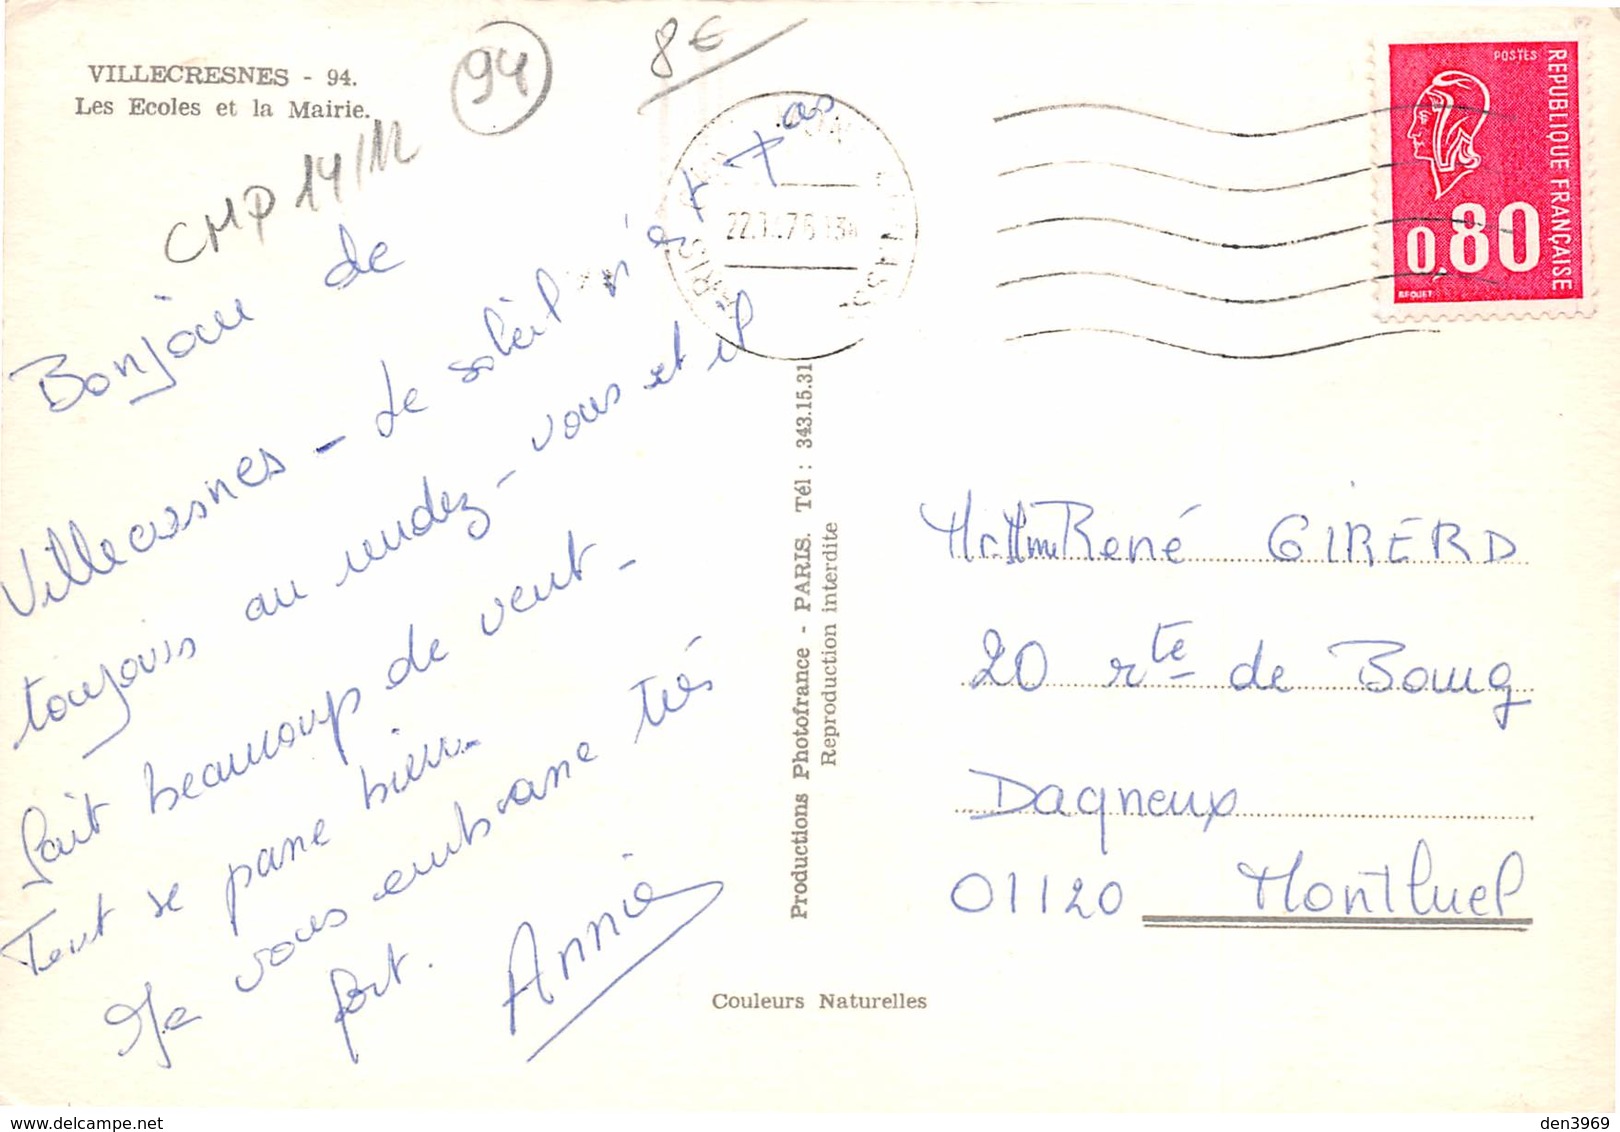 VILLECRESNES - 94.
Les Ecoles et la Mairie.
94
8€
CMP 14/12
Bonjour de
Villecresnes - Le soleil n'est pas
toujours au rendez-vous et il
fait beaucoup de vent -
Tout se passe bien -
Je vous embrasse très
fort.
Annie
Productions Photofrance - PARIS. Tél : 343.15.31
Reproduction interdite
Couleurs Naturelles
PARIS
POSTES
REPUBLIQUE FRANÇAISE
0,80
BEQUET
Mr Mme René GIRERD
20 rte de Bourg
Dagneux
01120 Montluel
den3969